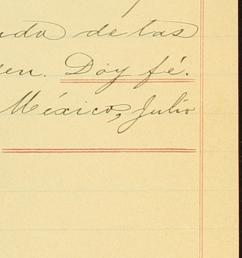 nda de las
en. Doy fé.
México, Julio